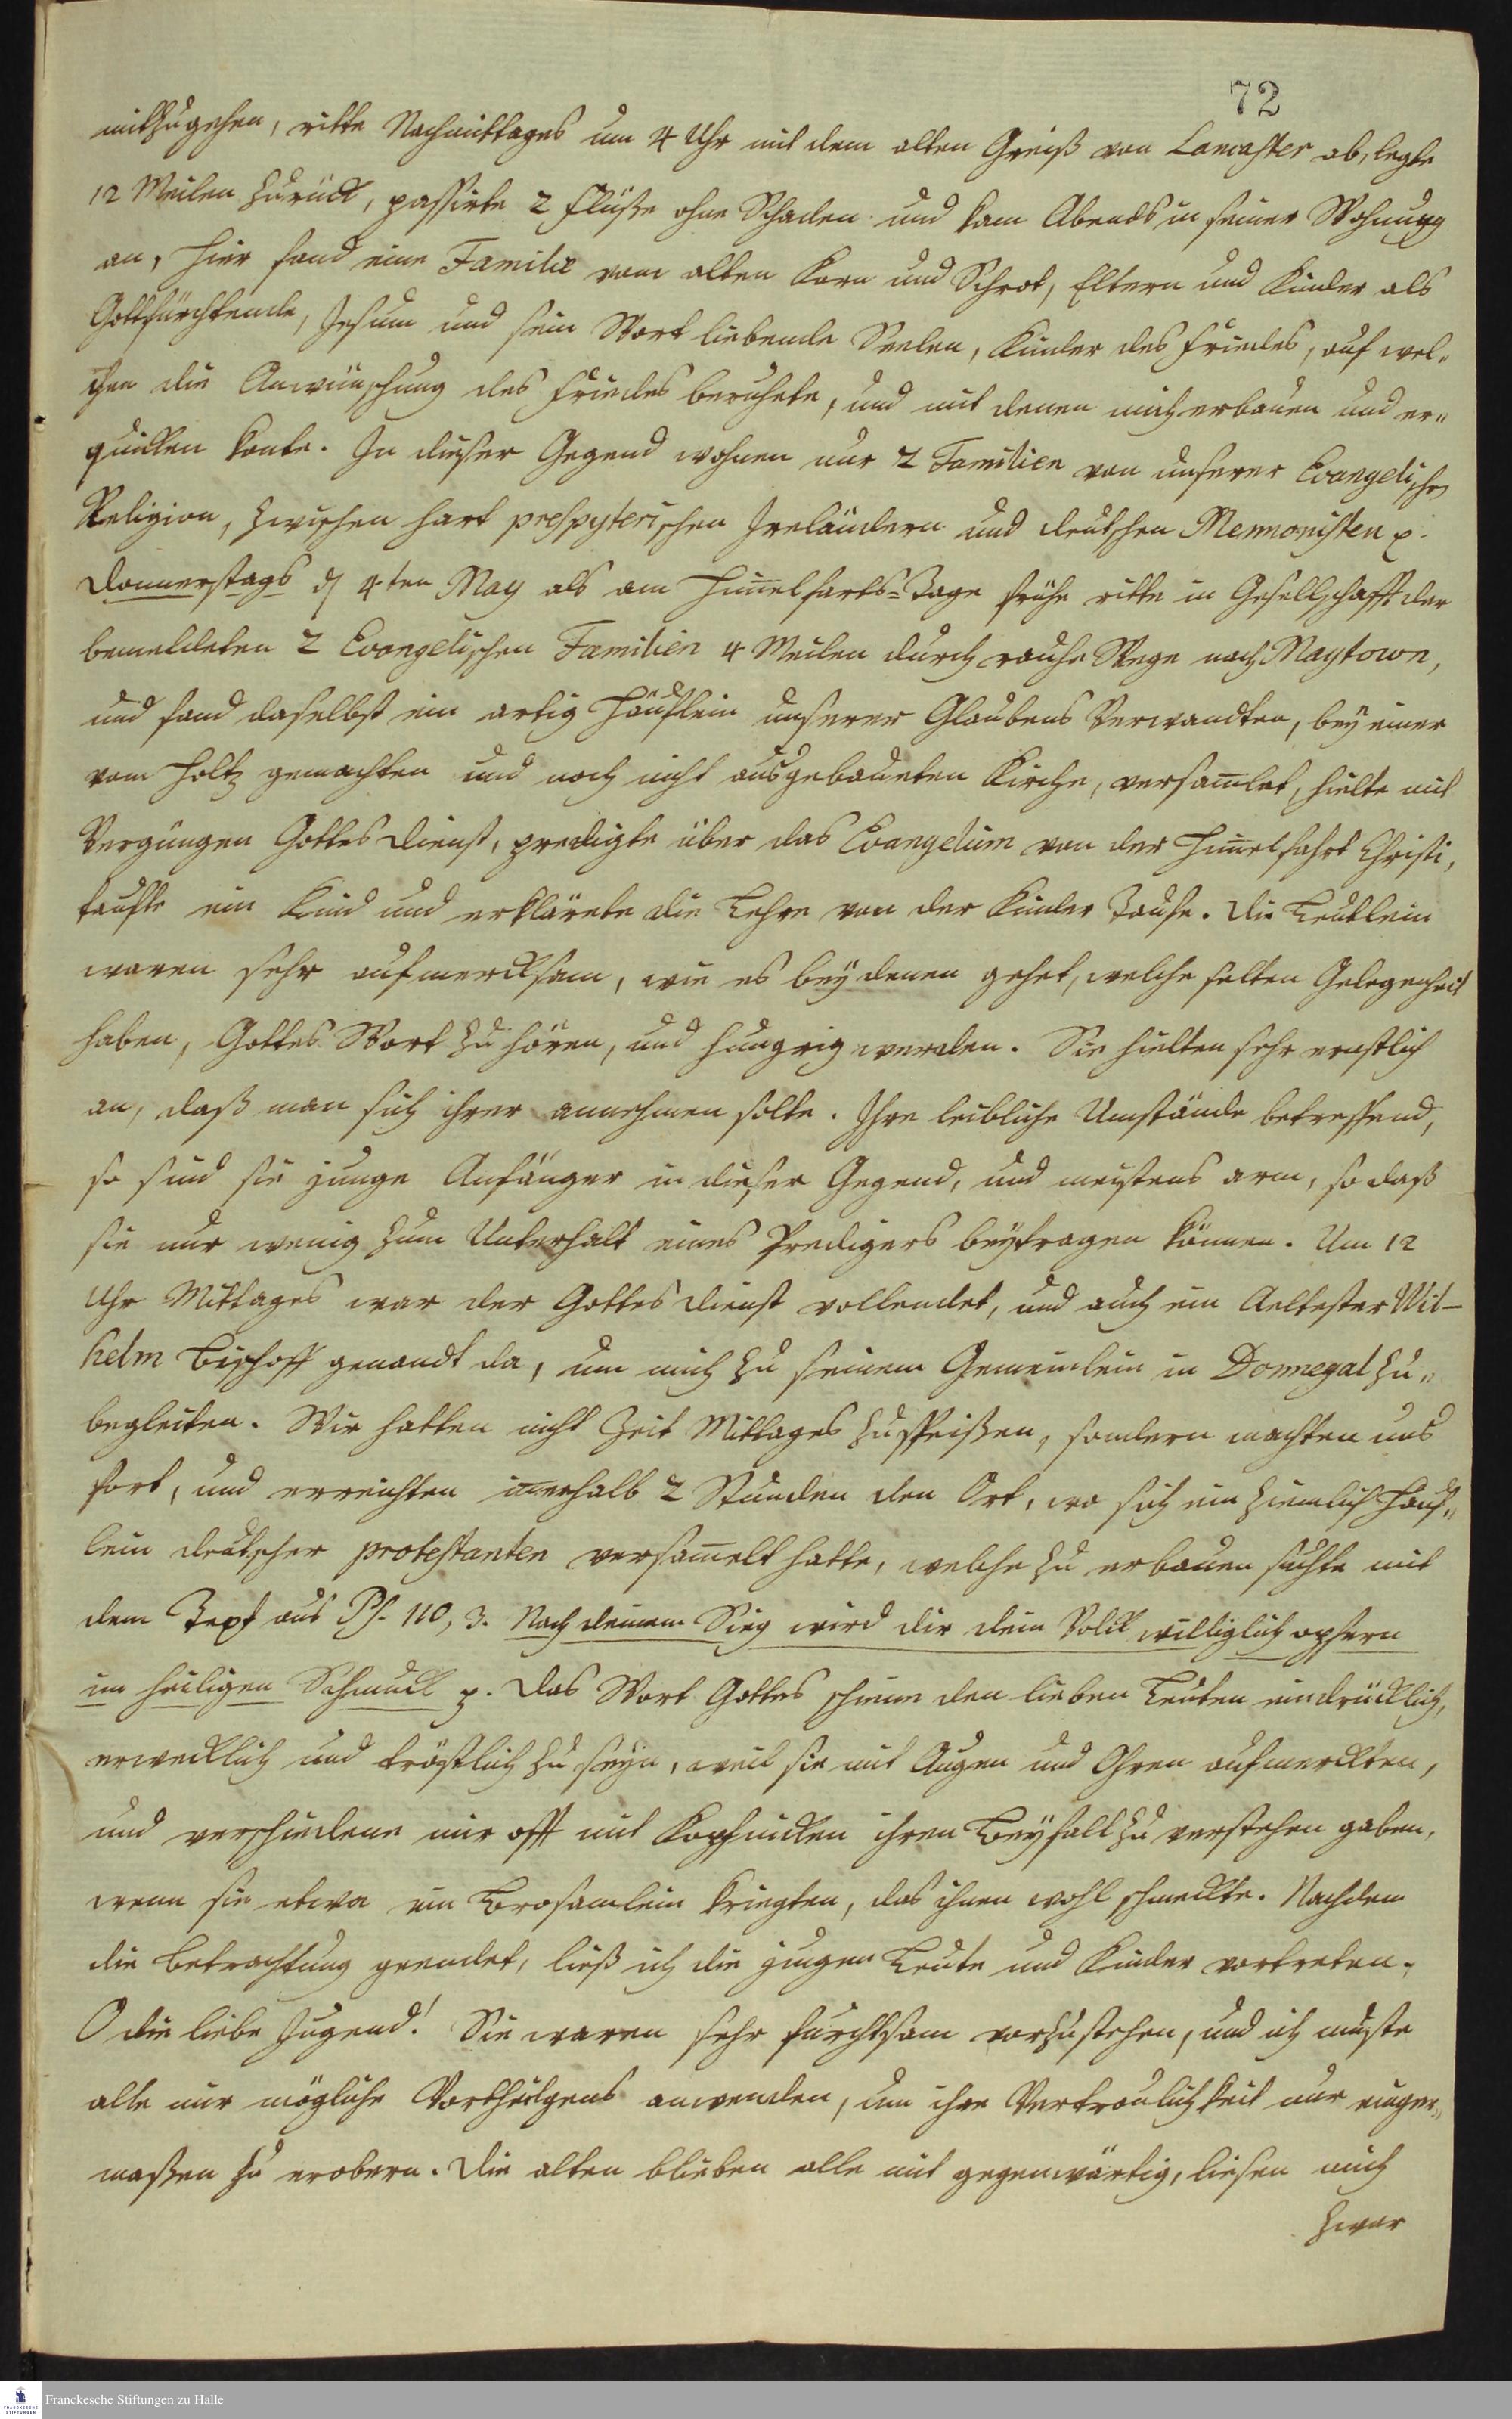 72
mitzugehen, ritte Nachmittages um 4 Uhr mit dem alten Greiß von Lancaster ab, legte
12 Meilen zurück, passirte 2 Flüße ohne Schaden und kam Abends in seiner Wohnung
an, hier fand eine Familie vom alten Korn und Schrot, Eltern und Kinder als
Gottsfürchtende, Jesum und sein Wort liebende Seelen, Kinder des Friedes, auf wel„
chen die Anwünschung des Friedes beruhete, und mit denen mich erbauen und er„
quicken konte. In dieser Gegend wohnen nur 2 Familien von unserer Evangelischen
Religion, zwischen hart prespyterischen Irrländern und deutschen Mennonisten p.
Donnerstags d 4ten May als am Him̅elfarts=Tage frühe ritte in Gesellschafft der
bemeldeten 2 Evangelischen Familien 4 Meilen durch rauhe Wege nach Maytown,
und fand daselbst ein artig Häuflein unserer Glaubens Verwandten, bey einer
vom Holtz gemachten und noch nicht ausgebaueten Kirche, versam̅let, hielte mit
Vergnügen Gottes Dienst, predigte über das Evangelium von der Him̅elfahrt Christi,
taufte ein Kind und erklärete die Lehre von der Kinder Taufe. Die Leutlein
waren sehr aufmercksam, wie es bey denen gehet, welche selten Gelegenheit
haben, Gottes Wort zu hören, und hungrig werden. Sie hielten sehr ernstlich
an, daß man sich ihrer annehmen solte. Ihre leibliche Umstände betreffend,
so sind sie junge Anfänger in dieser Gegend, und meistens arm, so daß
sie nur wenig zum Unterhalt eines Predigers beytragen können. Um 12
Uhr Mittages war der Gottes Dienst vollendet, und auch ein Aeltester Wil-
helm Bischoff genandt da, um mich zu seinem Gemeinlein in Donnegal zu„
begleiten. Wir hatten nicht Zeit Mittages zu speißen, sondern machten uns
fort, und erreichten in̅erhalb 2 Stunden den Ort, wo sich ein ziemlich Häuf„
lein deutscher protestanten versam̅elt hatte, welche zu erbauen suchte mit
dem Text aus Ps. 110, 3. Nach deinem Sieg wird dir dein Volck williglich opfern
im heiligen Schmuck p. Das Wort Gottes schiene den lieben Leuten eindrücklich,
erwecklich und tröstlich zu seyn, weil sie mit Augen und Ohren aufmerckten,
und verschiedene mir offt mit Kopfnicken ihren Beyfall zu verstehen gaben,
wenn sie etwa ein Brosamlein kriegten, das ihnen wohl schmeckte. Nachdem
die Betrachtung geendet, ließ ich die jungen Leute und Kinder vortreten.
O die liebe Jugend! Sie waren sehr furchtsam vorzustehen, und ich muste
alle nur mögliche Vortheilgens anwenden, um ihre Vertraulichkeit nur einger„
maßen zu erobern. Die alten blieben alle mit gegenwärtig, ließen mich
zwar
Franckesche Stiftungen zu Halle